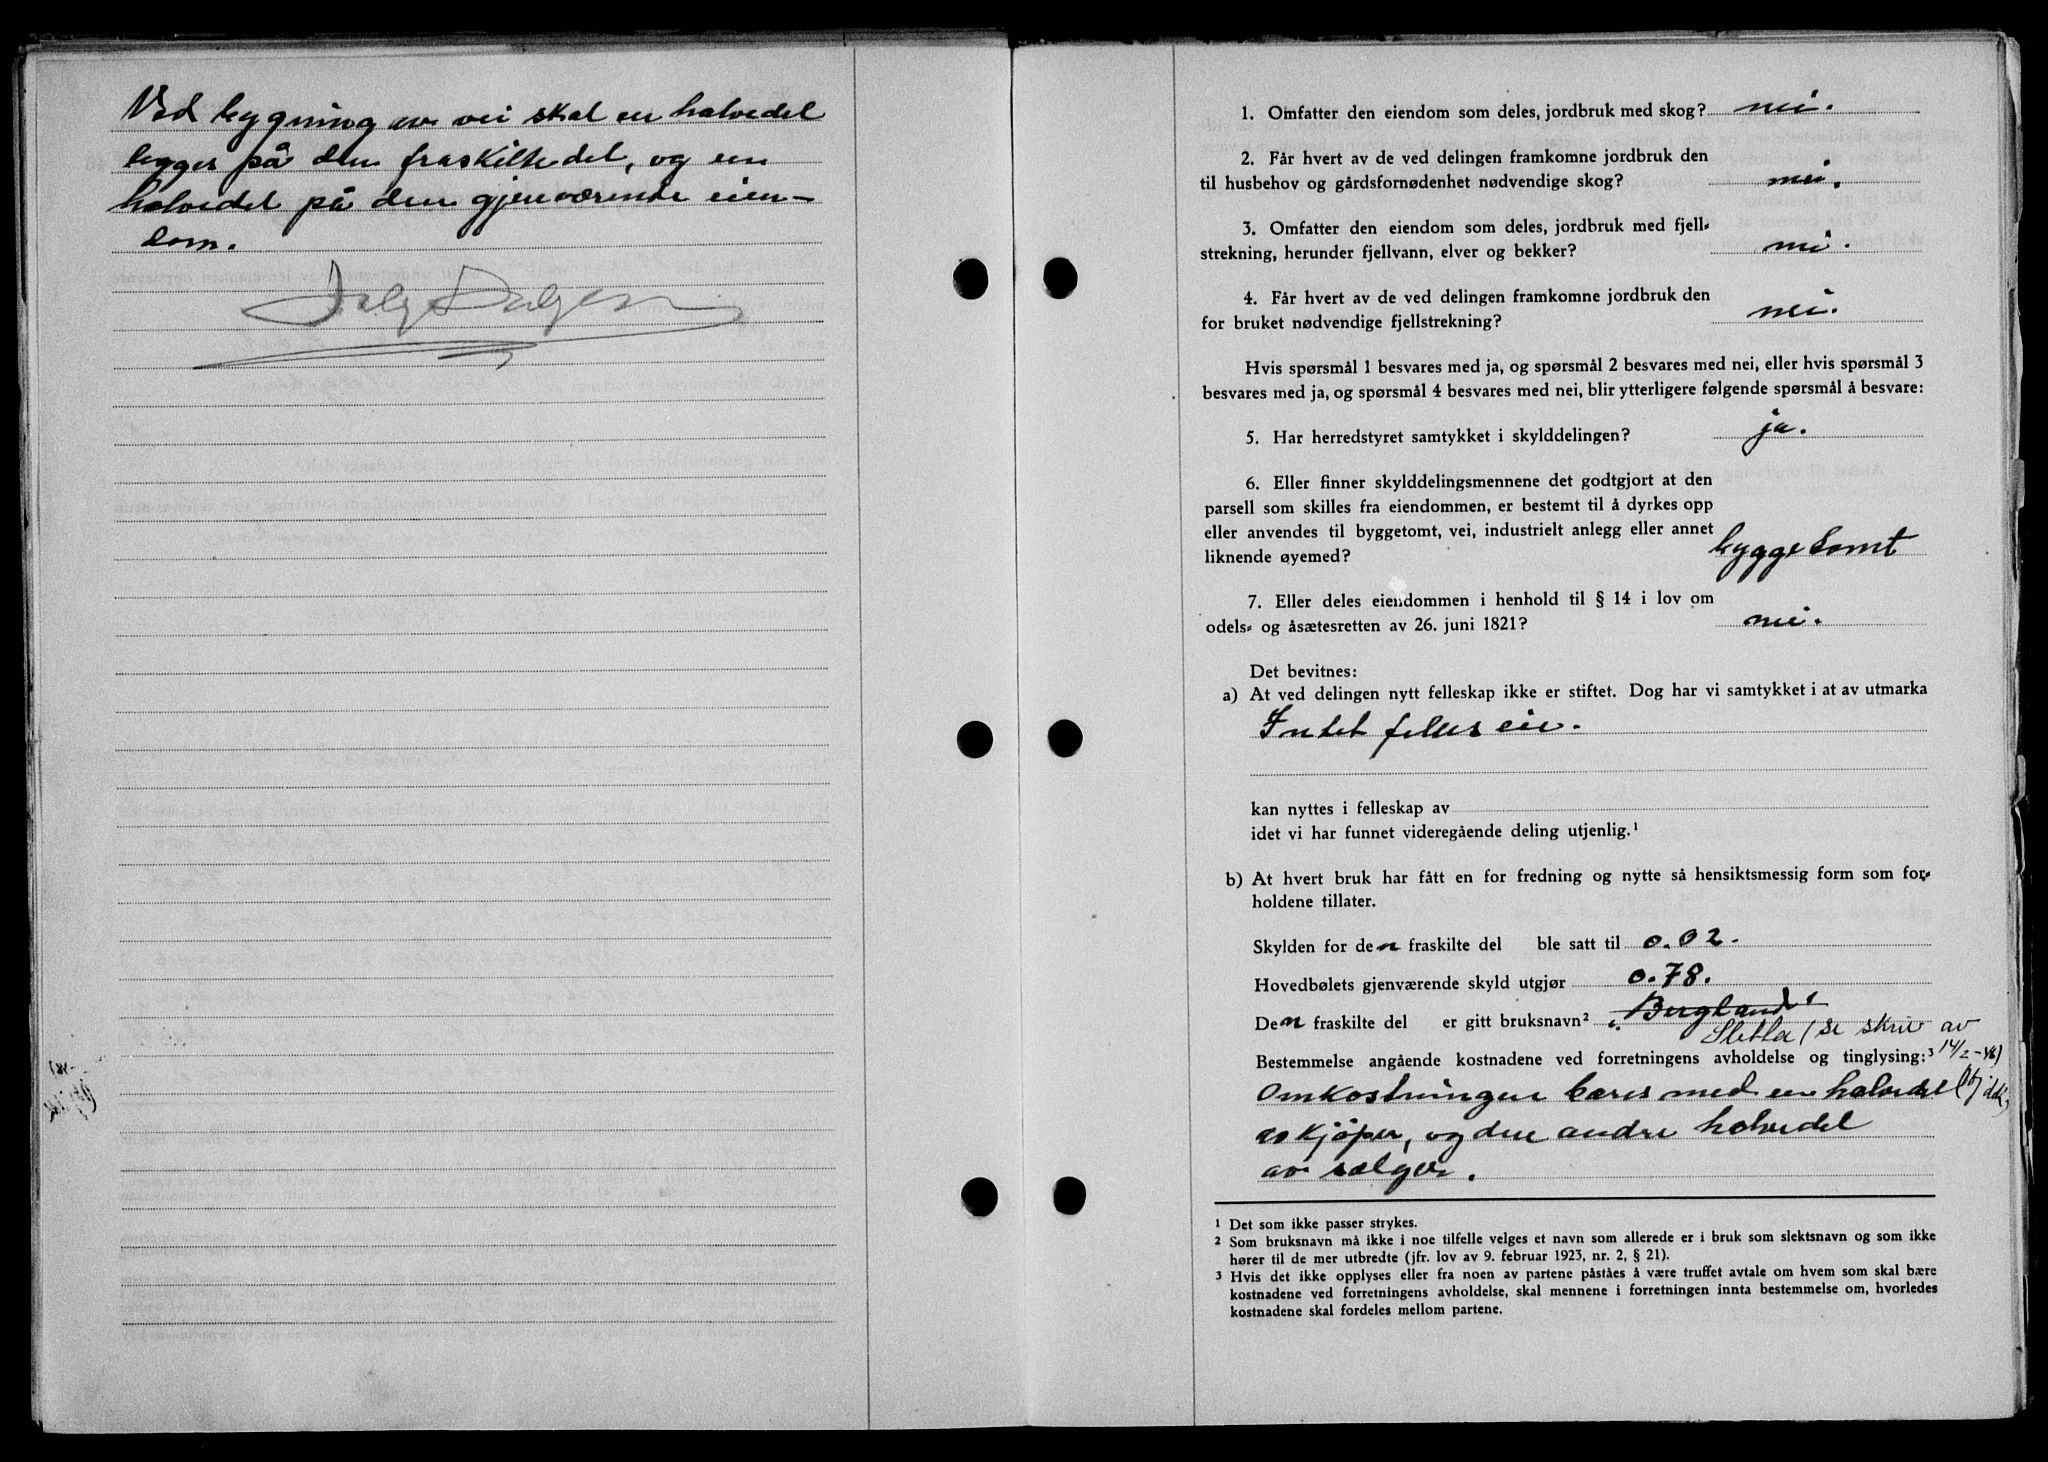 Ved bygning av vei skal en halvedel
legges på den fraskilte del, og een
halvedel på den gjenværende eien-
dom.
1. Omfatter den eiendom som deles, jordbruk med skog? nei.
2. Får hvert av de ved delingen framkomne jordbruk den
til husbehov og gårdsfornødenhet nødvendige skog? nei.
3. Omfatter den eiendom som deles, jordbruk med fjell-
strekning, herunder fjellvann, elver og bekker? nei.
4. Får hvert av de ved delingen framkomne jordbruk den
for bruket nødvendige fjellstrekning? nei.
Hvis spørsmål 1 besvares med ja, og spørsmål 2 besvares med nei, eller hvis spørsmål 3
besvares med ja, og spørsmål 4 besvares med nei, blir ytterligere følgende spørsmål å besvare:
5. Har herredstyret samtykket i skylddelingen? ja.
6. Eller finner skylddelingsmennene det godtgjort at den
parsell som skilles fra eiendommen, er bestemt til å dyrkes opp
eller anvendes til byggetomt, vei, industrielt anlegg eller annet
liknende øyemed? byggetomt
7. Eller deles eiendommen i henhold til § 14 i lov om
odels- og åsætesretten av 26. juni 1821? nei.
Det bevitnes:
a) At ved delingen nytt felleskap ikke er stiftet. Dog har vi samtykket i at av utmarka
Intet felles eie.
kan nyttes i felleskap av
idet vi har funnet videregående deling utjenlig.¹
b) At hvert bruk har fått en for fredning og nytte så hensiktsmessig form som for-
holdene tillater.
Skylden for den fraskilte del ble satt til 0.02.
Hovedbølets gjenværende skyld utgjør 0.78.
Den fraskilte del er gitt bruksnavn² "Bergland"
Sletta (se skriv av
Bestemmelse angående kostnadene ved forretningens avholdelse og tinglysing:³ 14/2-46)
Omkostningene bæres med en halvdel
av kjøper, og den andre halvedel
av sælger.
¹ Det som ikke passer strykes.
² Som bruksnavn må ikke i noe tilfelle velges et navn som allerede er i bruk som slektsnavn og som ikke
hører til de mer utbredte (jfr. lov av 9. februar 1923, nr. 2, § 21).
³ Hvis det ikke opplyses eller fra noen av partene påståes å være truffet avtale om hvem som skal bære
kostnadene ved forretningens avholdelse, skal mennene i forretningen innta bestemmelse om, hvorledes
kostnadene skal fordeles mellom partene.